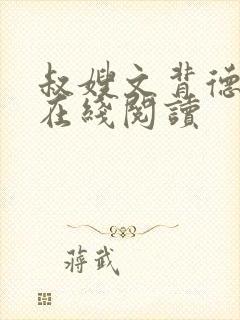 叔嫂文背德
在綫閱讀
蔣武